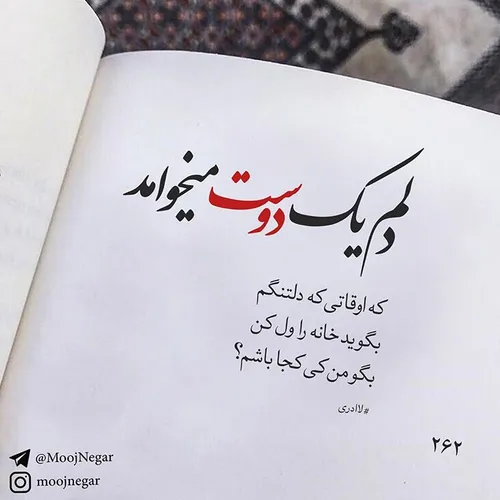 دلم یک دوست میخواهد
که اوقاتی که دلتنگم
بگوید خانه را ول کن
بگو من کی کجا باشم؟
#لاادری
۲۶۲
@MoojNegar
moojnegar